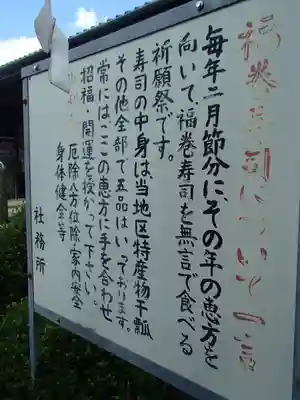 福巻寿司についての一言
毎年二月節分に、その年の恵方を
向いて、福巻寿司を無言で食べる
祈願祭です。
寿司の中身は、当地区特産物干瓢
その他全部で五品はいっております。
常にはここの恵方に手を合わせ
招福・開運を授かって下さい。
厄除・八方位除・家内安全
身体健全等
社務所